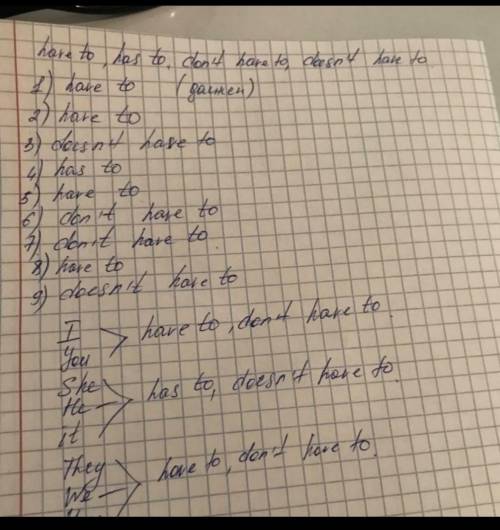 have to, has to, don't have to, doesn't have to
1) have to (должен)
2) have to
3) doesn't have to
4) has to
5) have to
6) don't have to
7) don't have to.
8) have to
9) doesn't have to
I
You
have to, don't have to.
She
He
it
has to, doesn't have to.
They
We
have to, don't have to.